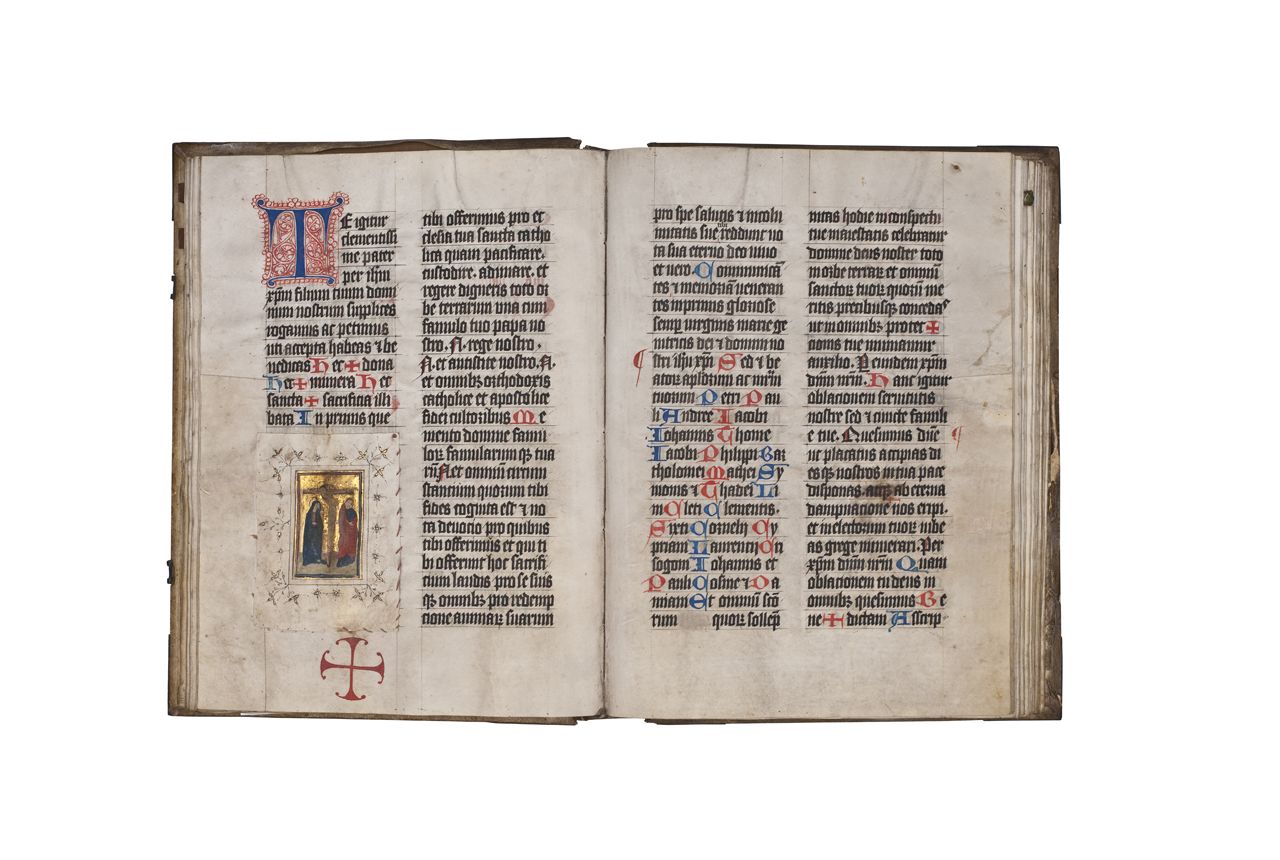 TE igitur
clementissi
me pater
per ihm
xpm filium tuum domi
num nostrum supplices
rogamus ac petimus
uti accepta habeas ⁊ be
nedicas h ec + dona
h ec + munera h ec
sancta + sacrificia illi
bata In primis que
tibi offerimus pro ec
clesia tua sancta catho
lica quam pacificare.
custodire. adunare. et
regere digneris toto or
be terrarum vna cum
famulo tuo papa no
stro. N. rege nostro.
N. et antistite nostro. N.
et omnibus orthodoxis
catholice et apostolice
fidei cultoribus Me
mento domine famu
lorꝝ famularum qꝫ tua
rū N. et omnium circum
stantium quorum tibi
fides cognita est ⁊ no
ta devocio pro quibus
tibi offerimus et qui ti
bi offerunt hoc sacrifi
cium laudis pro se suis
qꝫ omnibꝫ pro redemp
cione animaꝝ suarum
pro spe salutis ⁊ incolu
mitatis sue tibi reddunt vo
ta sua eterno deo vivo
et vero. Communicā
tes ⁊ memoriam veneran
tes inprimis gloriose
semp virginis marie ge
nitricis dei ⁊ domini no
stri ihu xpi Sed ⁊ be
atorꝝ aplorum ac mrm
tuorum Petri Pau
li Andree Iacobi
Iohannis Thome
Iacobi Philippi Bar
tholomei Mathei Sy
monis ⁊ Thadei Li
ni Cleti Clementis.
Sixti Cornelii Cy
priani Laurencii Cri
sogoni Iohannis et
Pauli Cosme ⁊ Da
miani Et omniū scō
rum quorꝝ sollēp
nitas hodie in conspectu
tue maiestatis celebratur
domine deus noster toto
in orbe terrarꝝ et omniū
sanctorꝝ tuorꝝ quorū me
ritis precibusqꝫ concedas
ut in omnibꝫ protec +
cionis tue muniamur
auxilio. Per eundem xpm
dnm nrm. Hanc igitur
oblacionem servitutis
nostre sed ⁊ cuncte famili
e tue. Quesumus dne
ut placatus accipias di
es qꝫ nostros in tua pace
disponas. atqꝫ ab eterna
dampnacione nos eripi.
et in electorum tuorꝝ iube
as grege numerari. Per
xpm dnm nrm Quam
oblacionem tu deus in
omnibꝫ quesumus Be
ne + dictam Ascrip